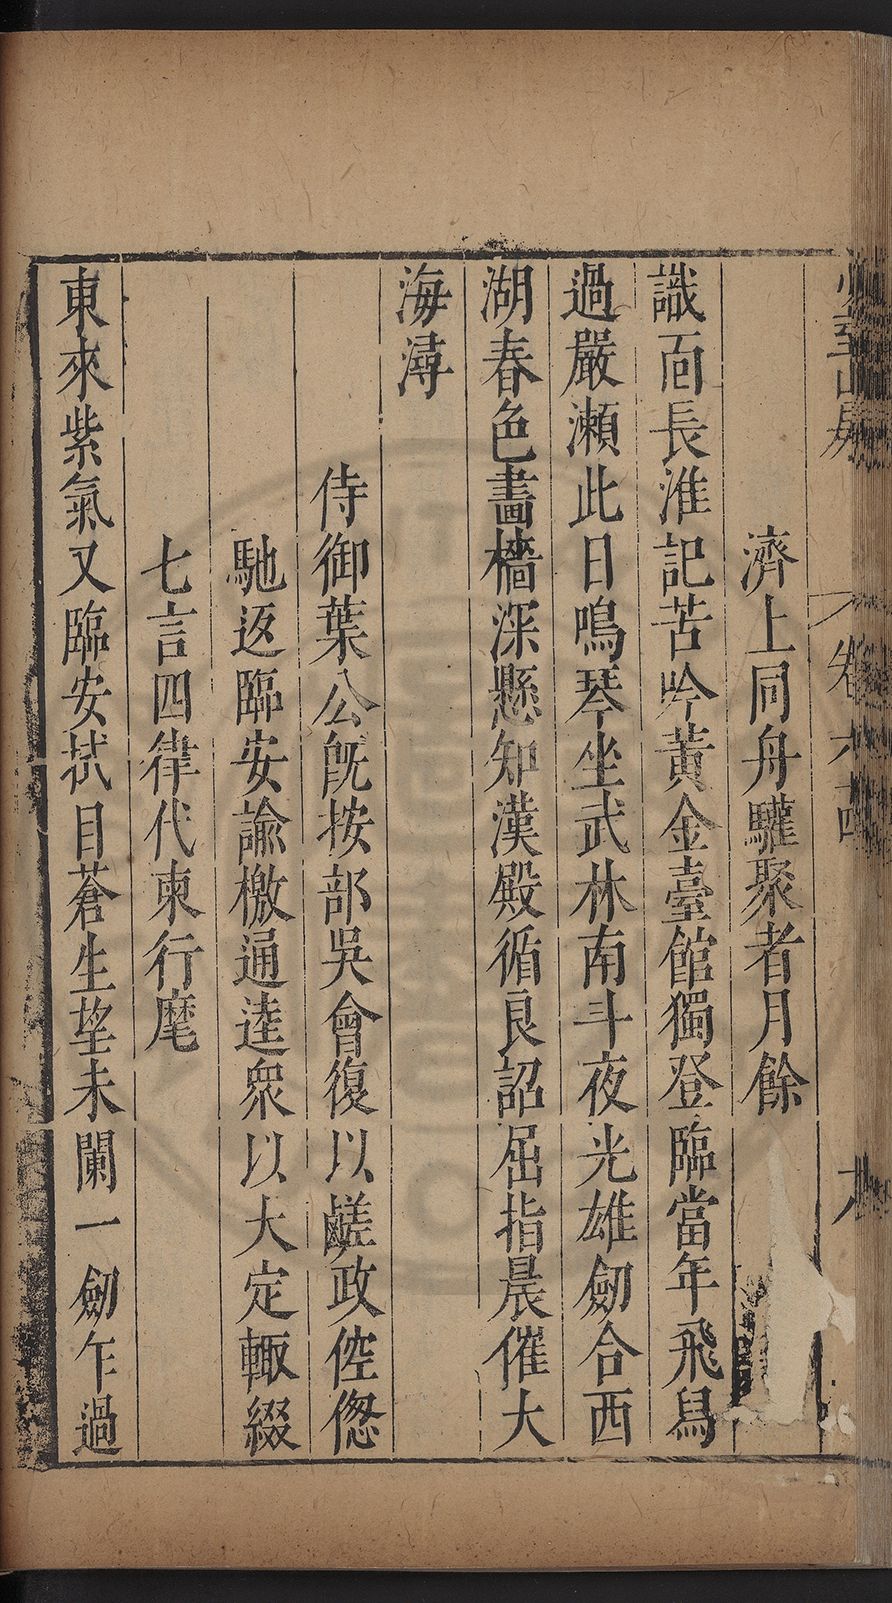 濟上同舟驩聚者月餘
識面長淮記苦吟黃金臺館獨登臨當年飛舄
過嚴瀨此日鳴琴坐武林南斗夜光雄劒合西
湖春色畫檣深懸知漢殿循良詔屈指晨催大
海潯
侍御葉公旣按部吳會復以鹺政倥偬
馳返臨安諭檄通逵衆以大定輙綴
七言四律代柬行麾
東來紫氣又臨安拭目蒼生望未闌一劒乍過